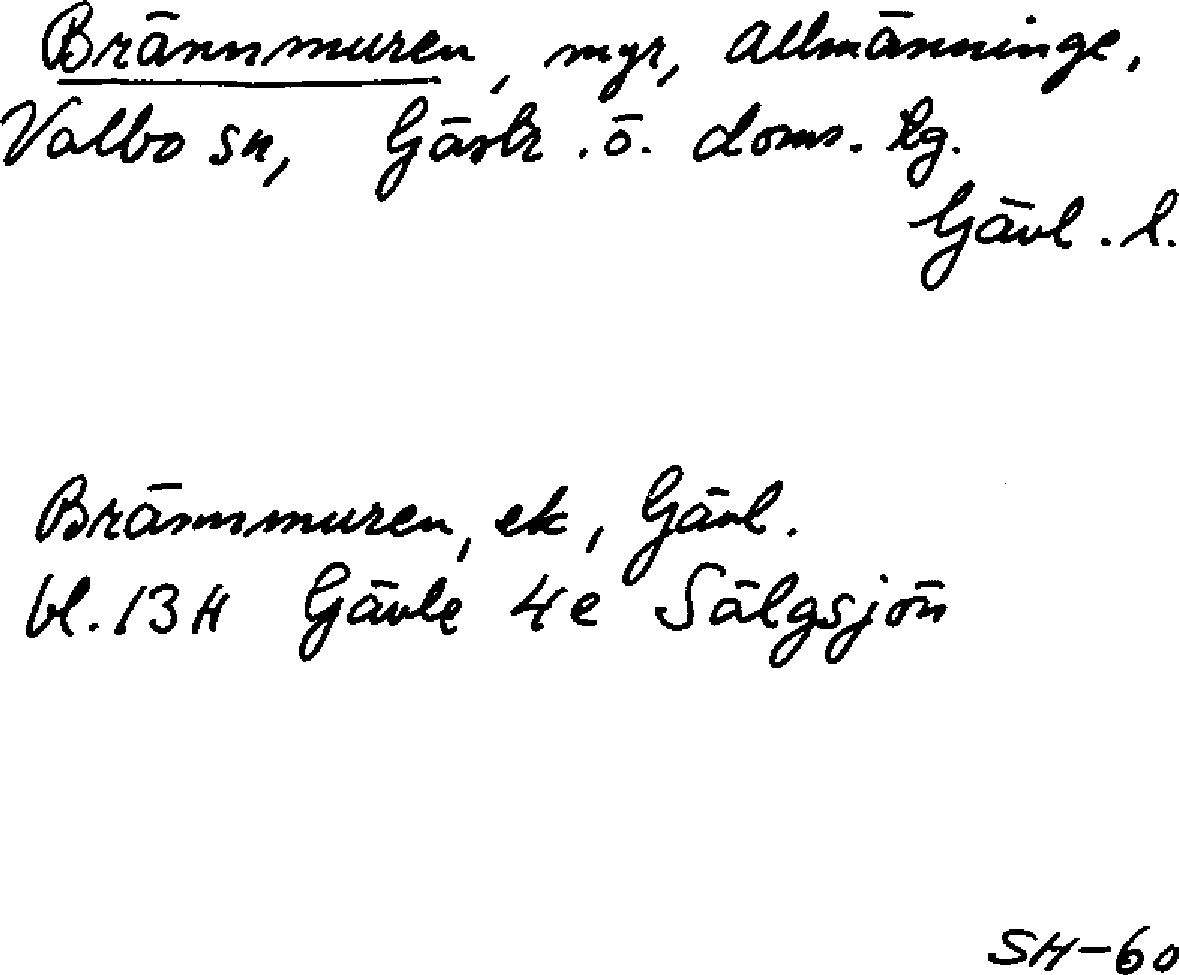 Brännmuren, myr, Allmänninge,
Valbo sn, Gästr. ö. doms. tg.
Gävl. l.
Brännmuren, ek, Gävl.
bl. 13H Gävle 4e Sälgsjön
SH-60